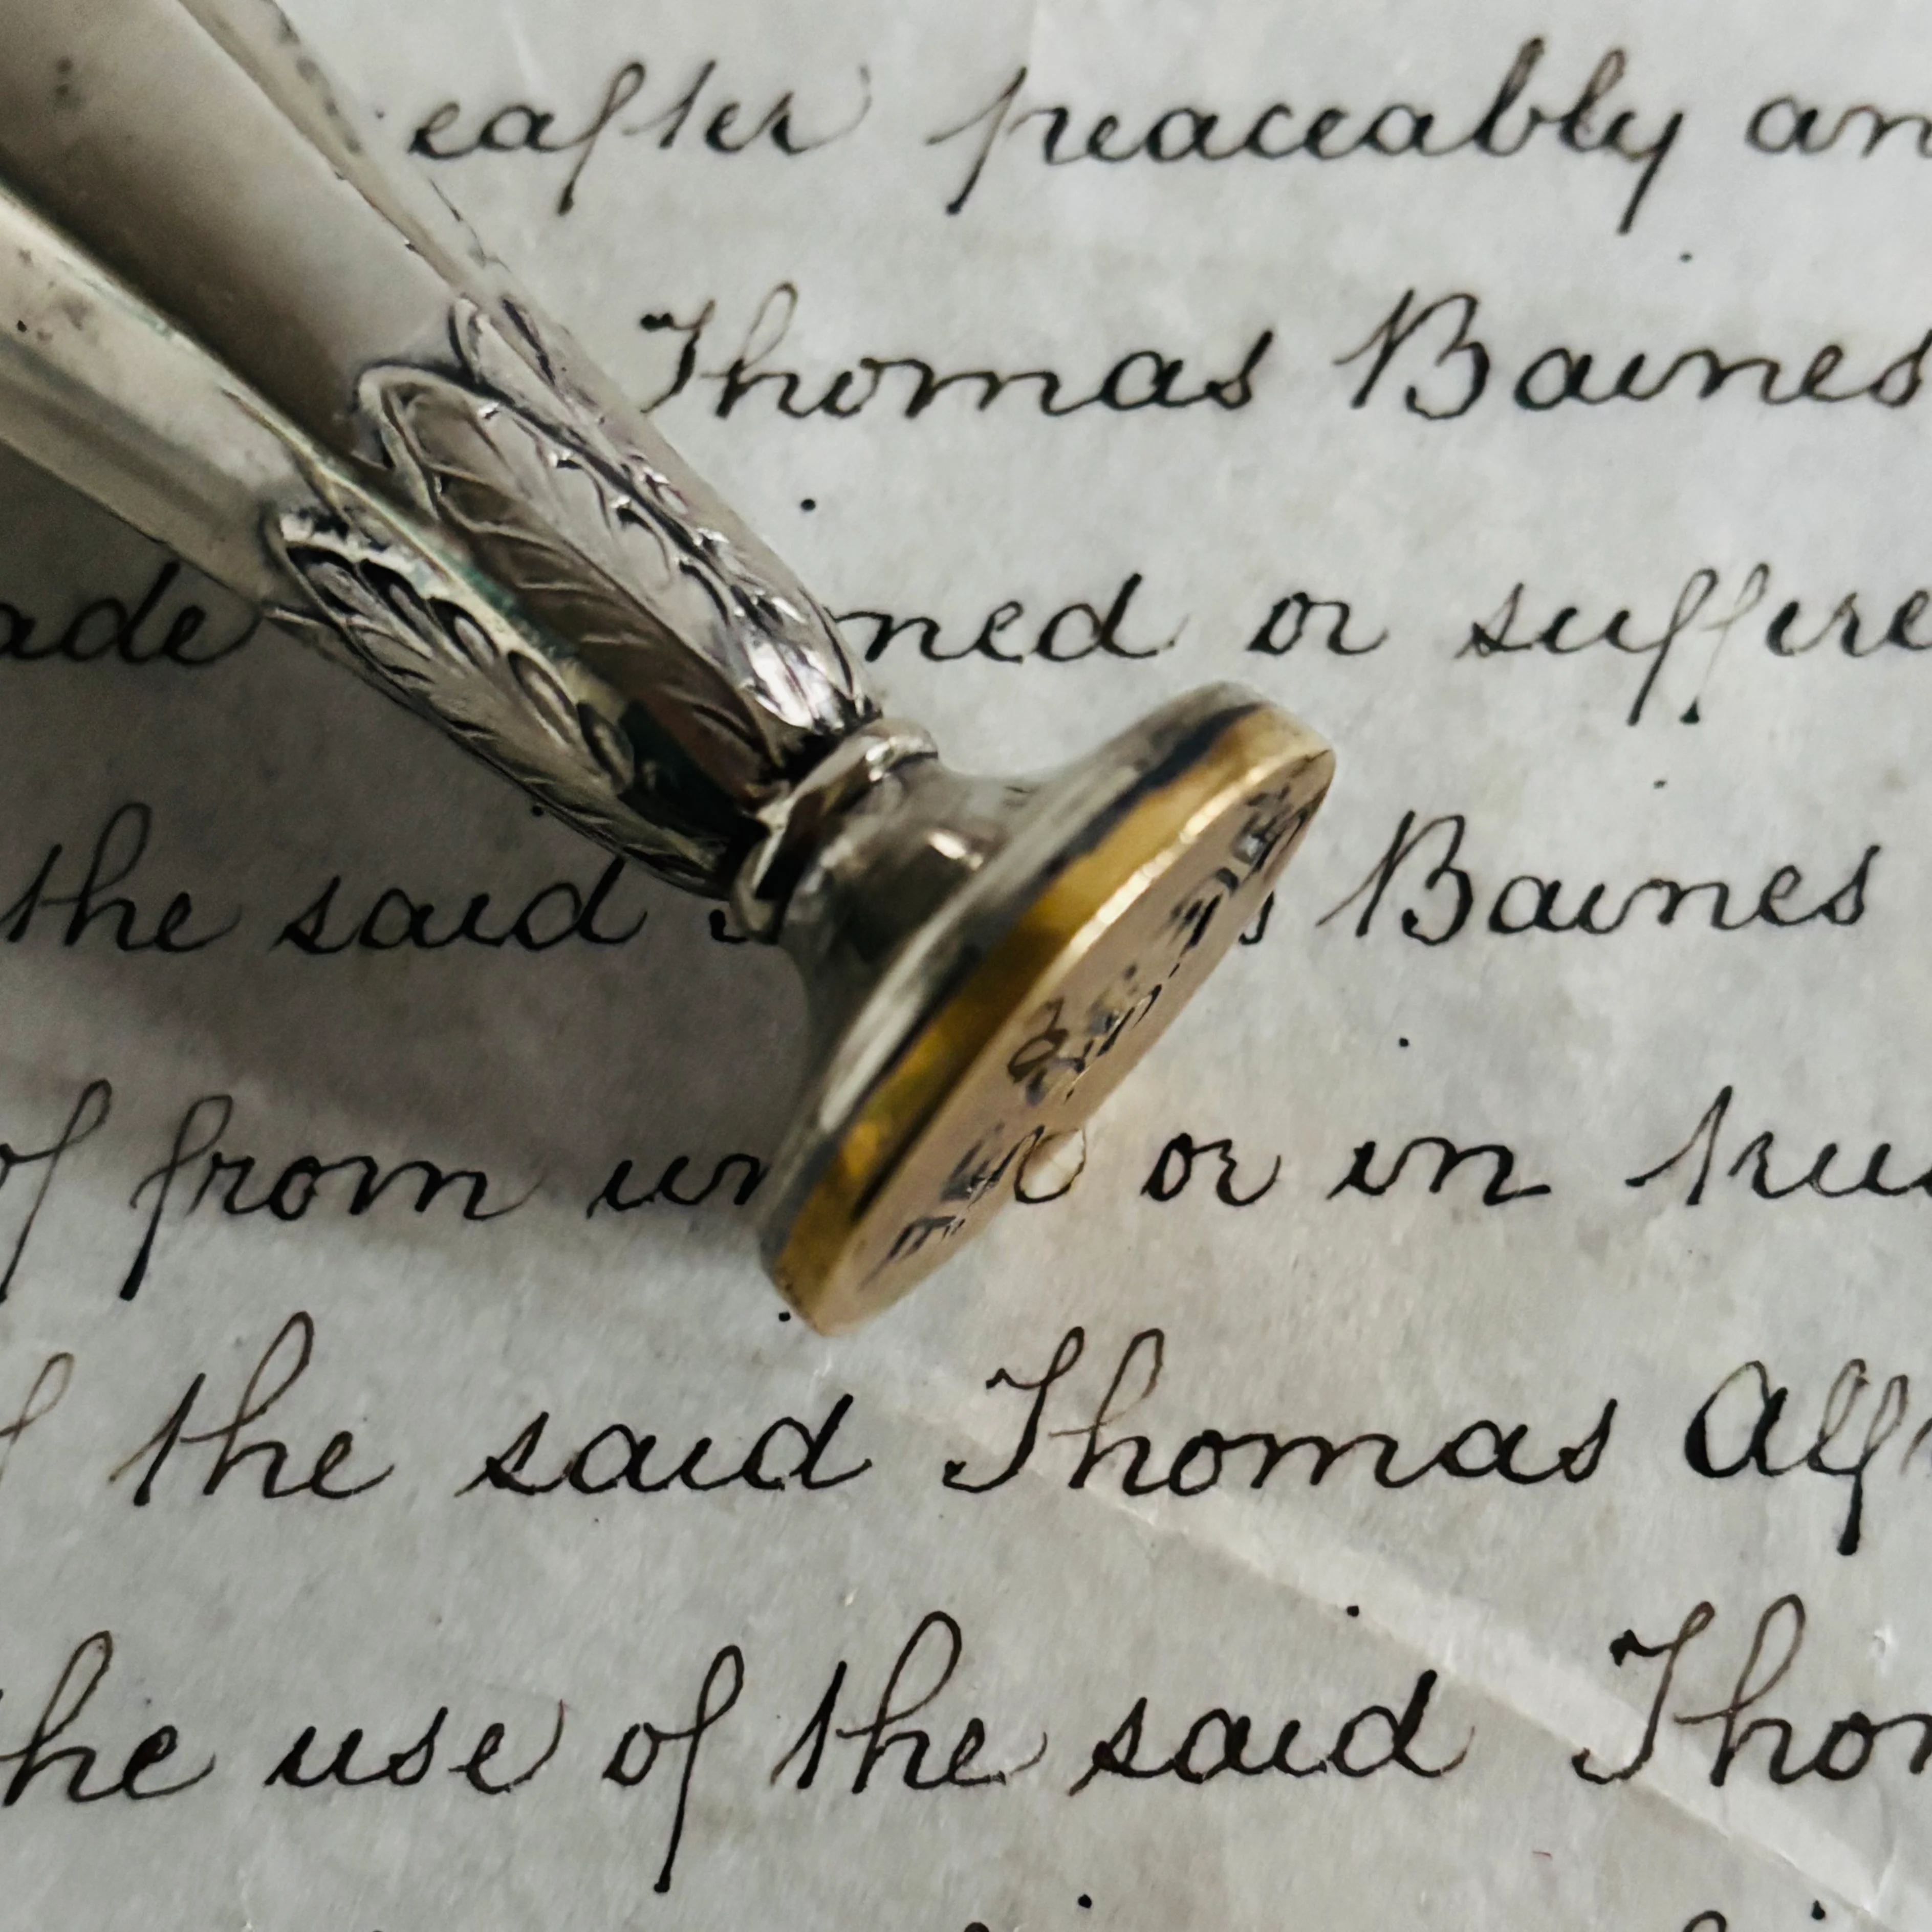 eafter peaceably an
Thomas Baines
ade ned or suffere
the said s Baines
of from un or in tru
the said Thomas Alf
he use of the said Thom